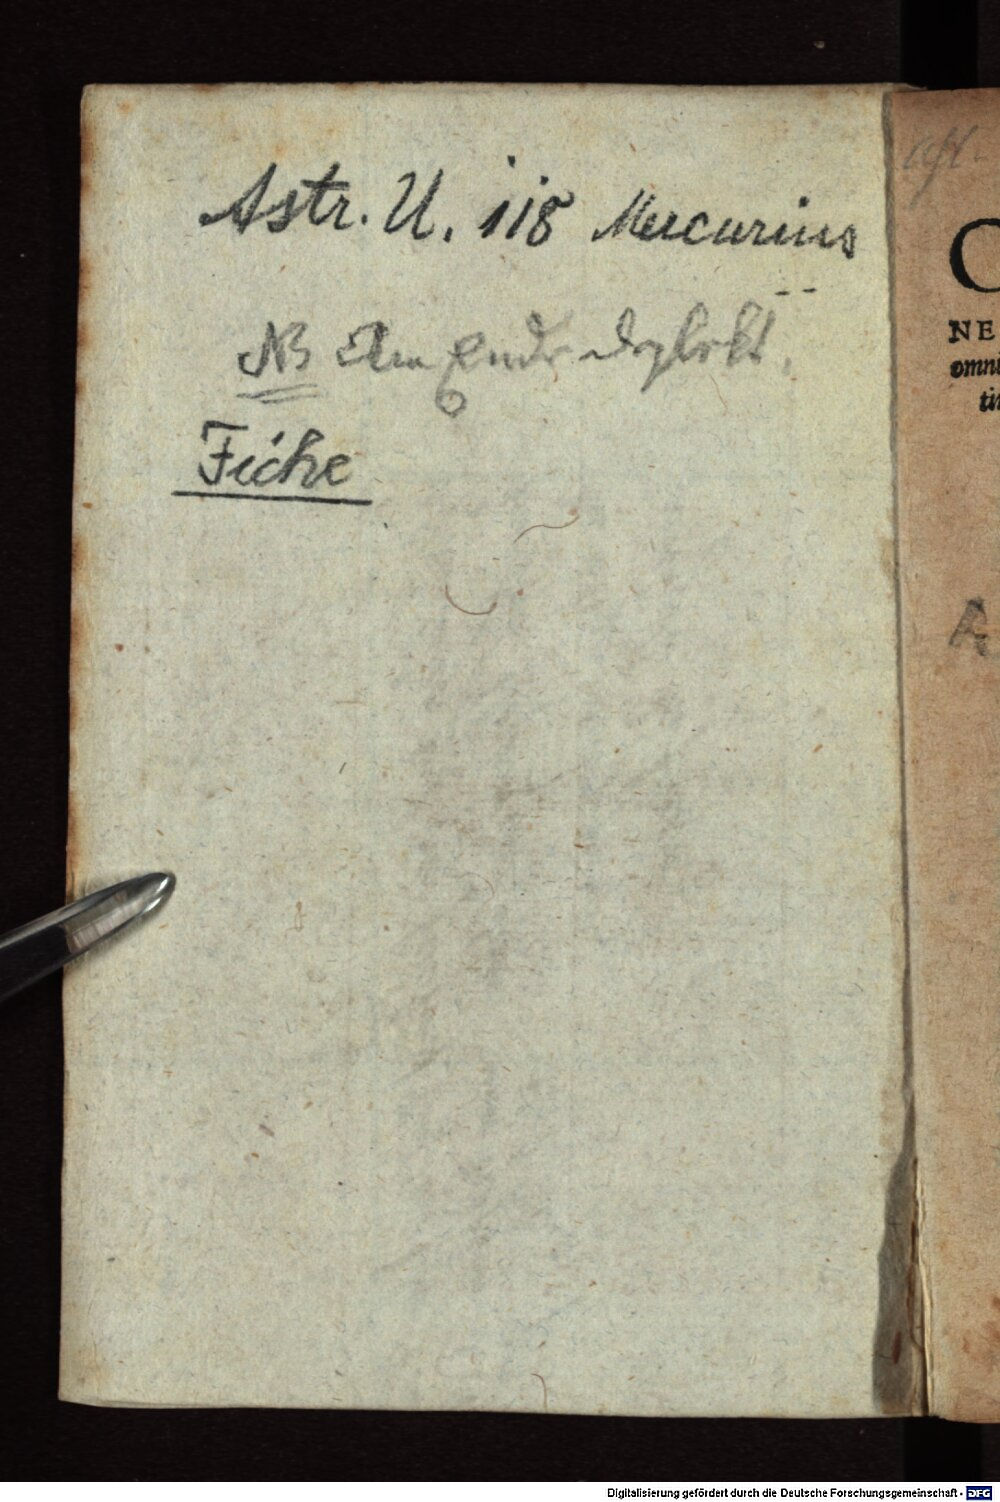 Astr. U. 118 Mercurius
NB Am Ende defekt.
Fiche
NE
omni
tin
Digitalisierung gefördert durch die Deutsche Forschungsgemeinschaft - DFG